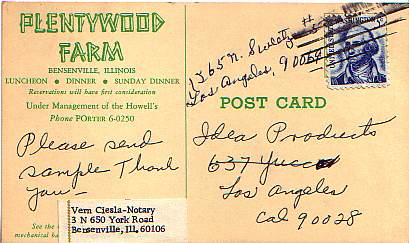 PLENTYWOOD
FARM
BENSENVILLE, ILLINOIS
LUNCHEON • DINNER • SUNDAY DINNER
Reservations will have first consideration
Under Management of the Howell's
Phone PORTER 6-0250
Please send
sample Thank
you—
See the
mechanical ba
Vern Ciesla-Notary
3 N 650 York Road
Bensenville, Ill. 60106
1365 N. #
Los Angeles, 90064
WASHINGTON 5c
POST CARD
Idea Products
637 Yucca
Los Angeles
Cal 90028